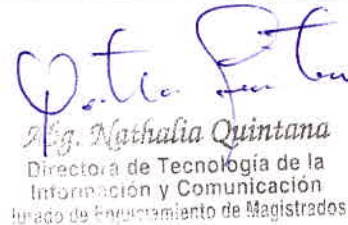 Abg. Nathalia Quintana
Directora de Tecnología de la
Información y Comunicación
Jurado de Enjuiciamiento de Magistrados